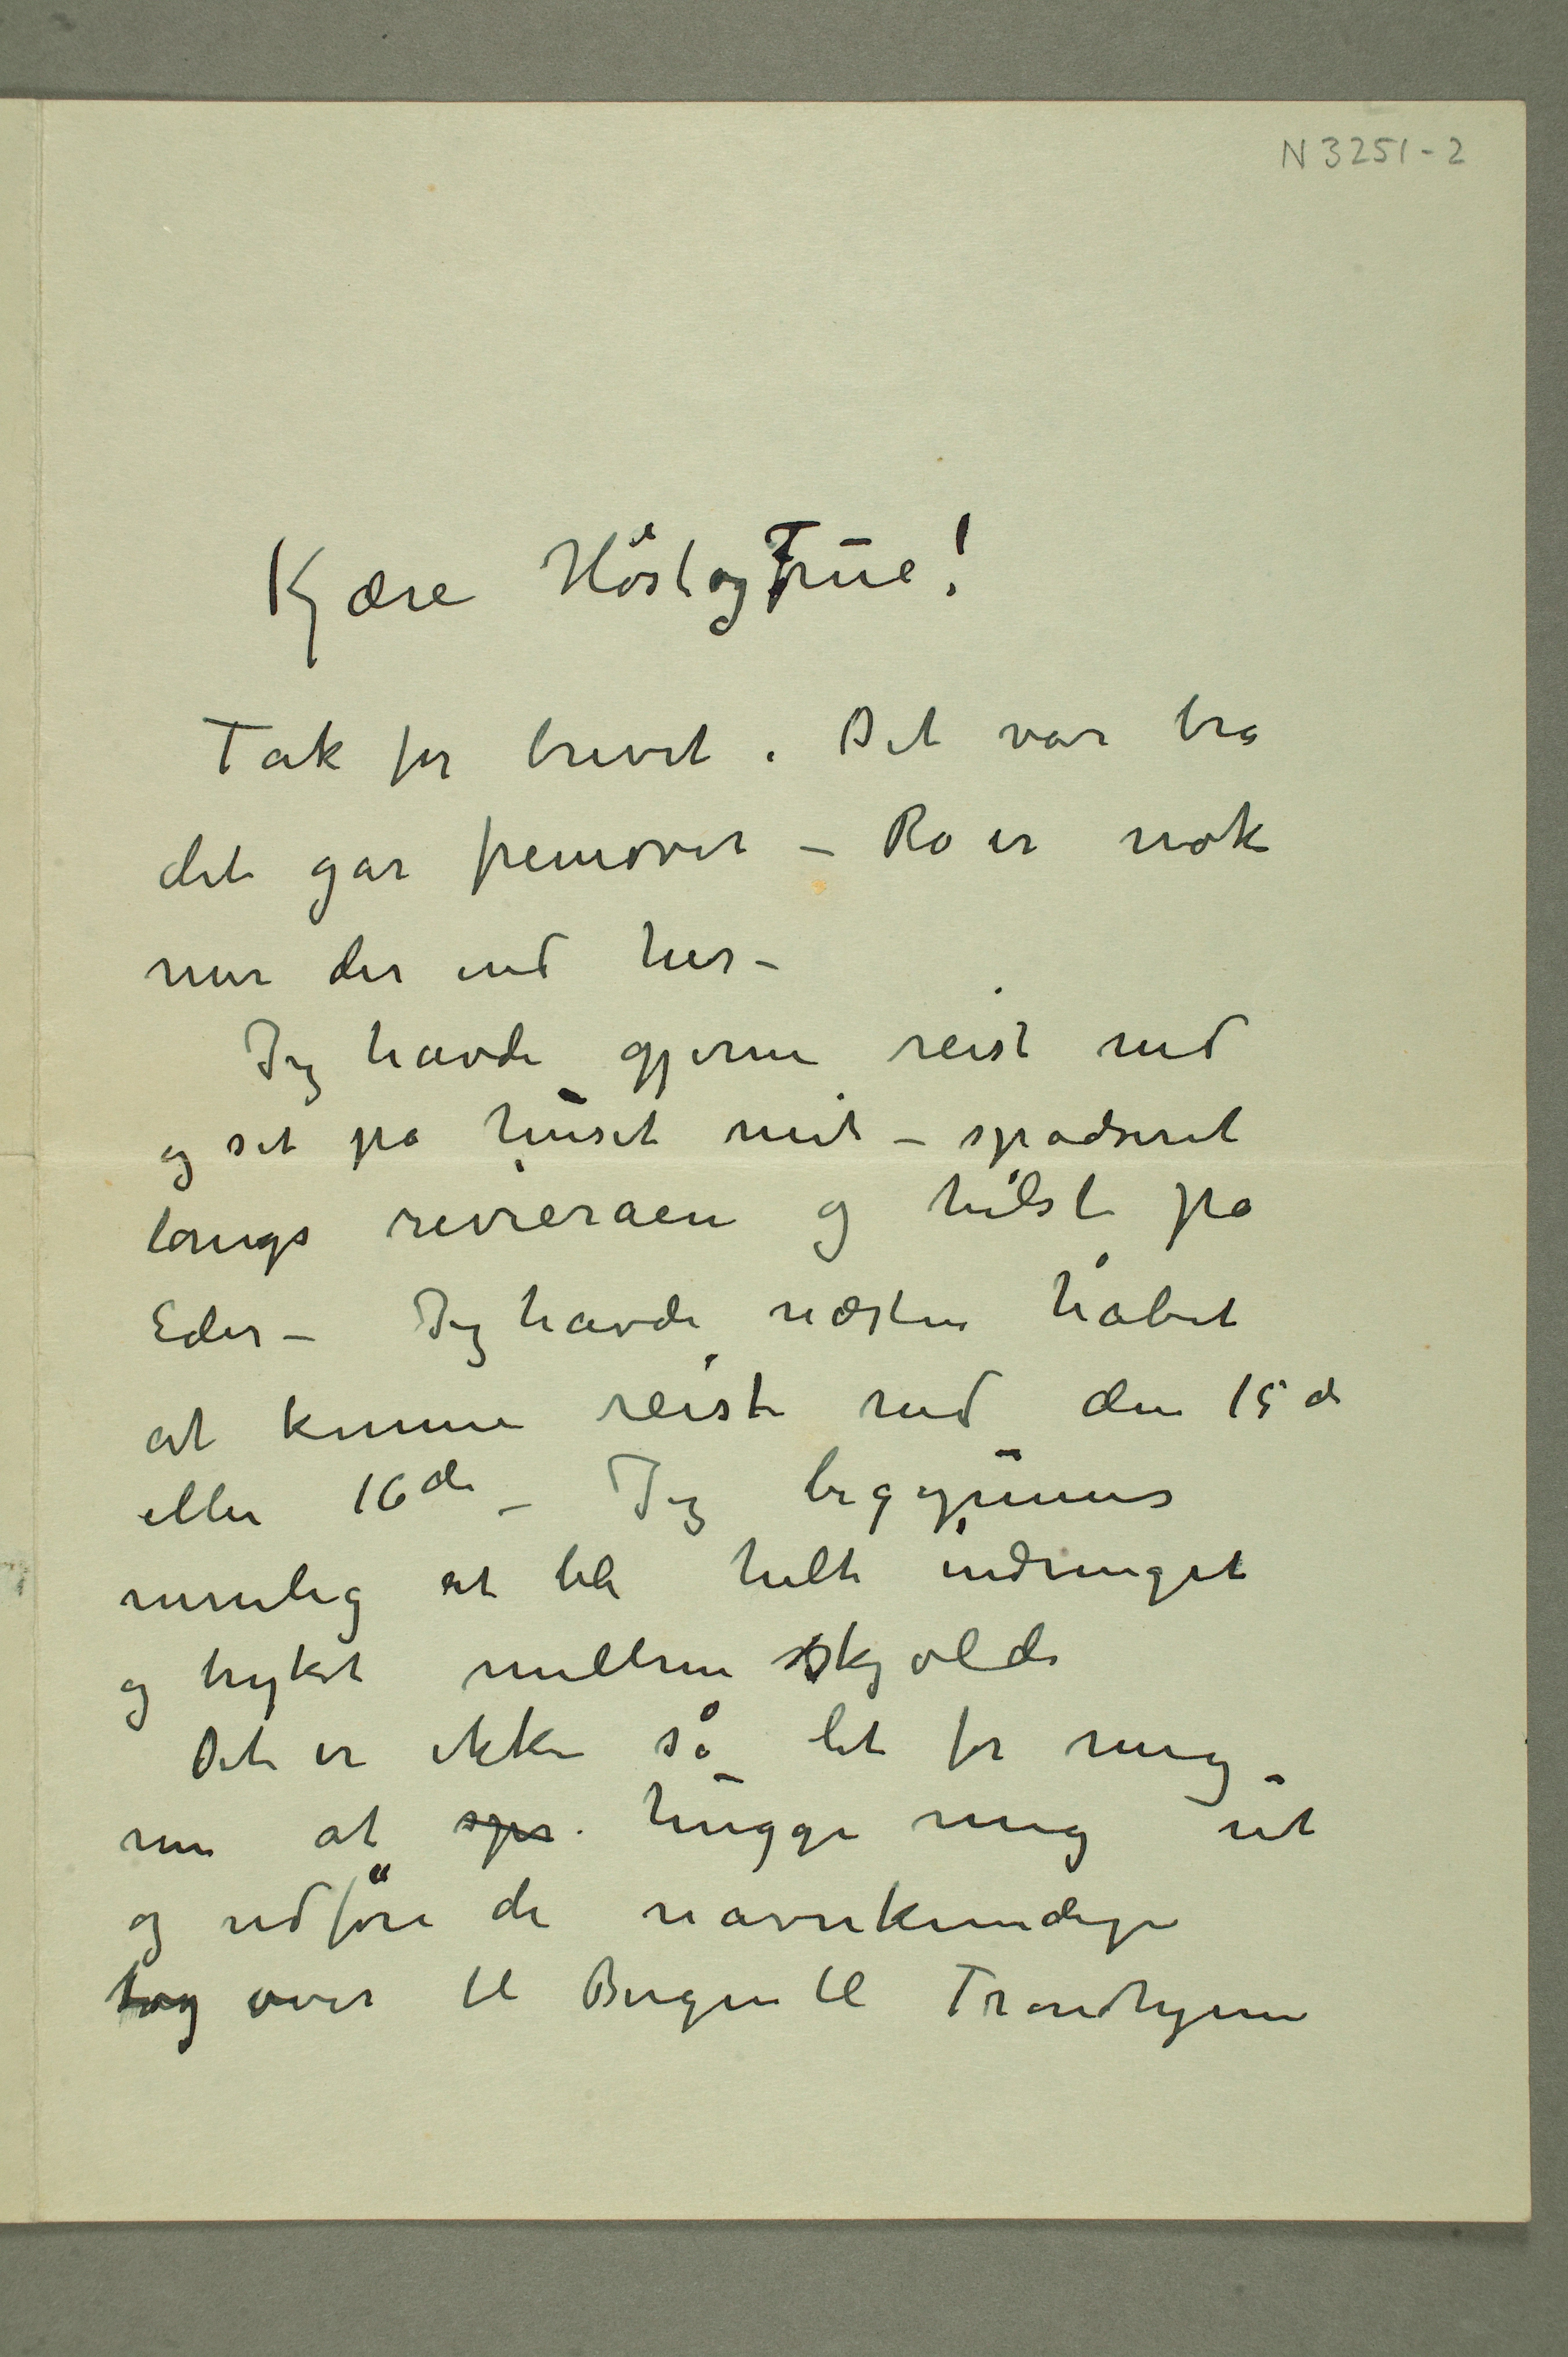 N 3251-2
Kjære Höst og Frue!
Tak for brevet. Det var bra
det går fremover – Ro er nok
mer der end her –
Jeg havde gjerne reist ned
og set på huset mit – spadseret
langs revieraen og hilst på
Eder – Jeg havde næsten håbet
at kunne reist ned den 15de
eller 16de – Jeg begynner
nemlig at bli helt indringet
og trykket mellem skjolde
Det er ikke så let for mig
nu at spr. hugge mig ut
og udføre de navnkundige
tog over til Bergen til Trondhjem